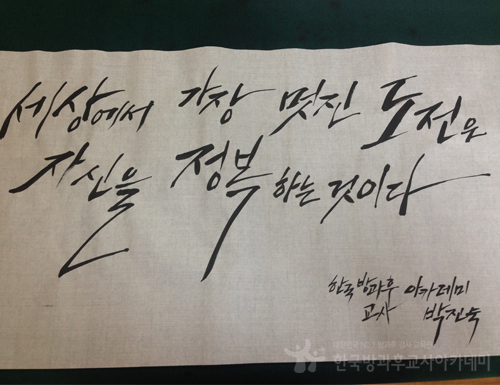 세상에서 가장 멋진 도전은
자신을 정복하는 것이다
한국방과후 아카데미
교사 박진숙
한국방과후교사아카데미